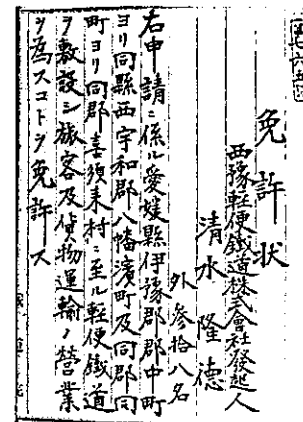 免許状
西豫輕便鐵道株式會社發起人
清水隆德
外參拾八名
右申請ニ係ル愛媛縣伊豫郡郡中町
ヨリ同縣西宇和郡八幡濱町及同郡同
町ヨリ同郡喜須来村ニ至ル輕便鐵道
ヲ敷設シ旅客及貨物運輸ノ營業
ヲ為スコトヲ免許ス